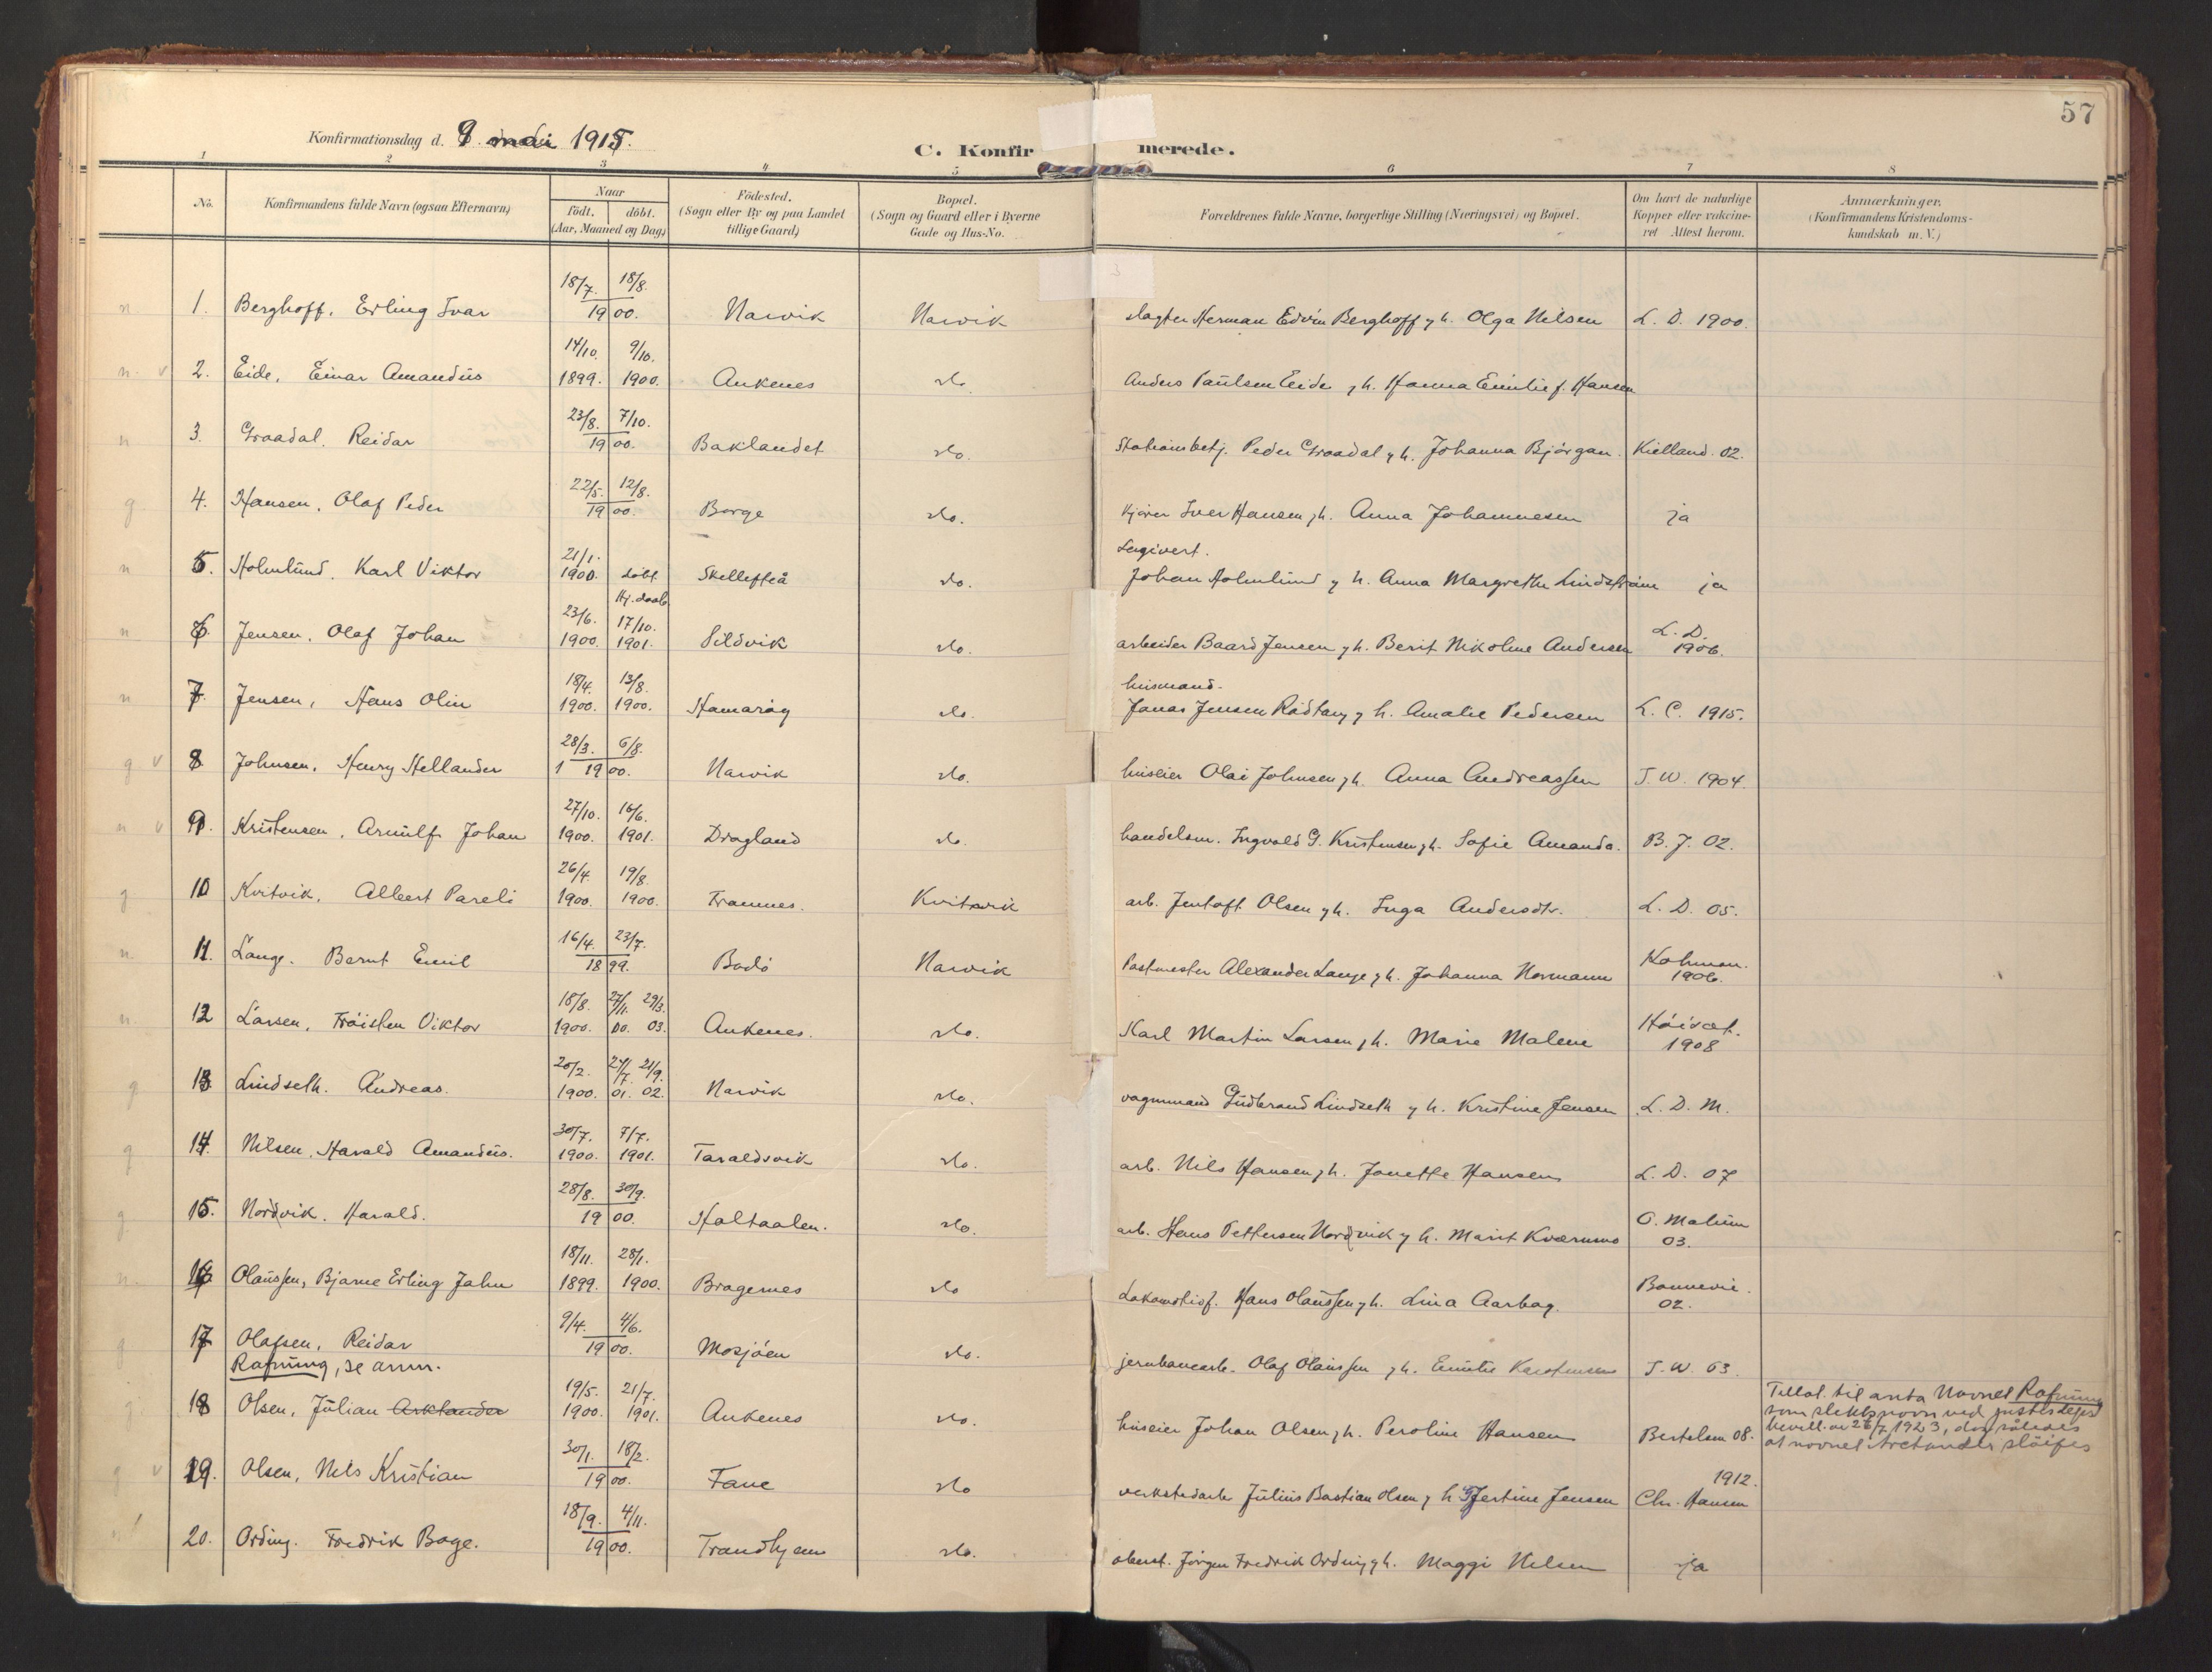 57
Konfirmationsdag d. 9. mai 1915.
C. Konfirmerede.
1 2 3 4 5 6 7 8
No.
Konfirmandens fulde Navn (ogsaa Efternavn)
Naar
født. døbt.
(Aar, Maaned og Dag)
Fødested.
(Sogn eller By og paa Landet
tillige Gaard)
Bopæl.
(Sogn og Gaard eller i Byerne
Gade og Hus-No.
Forældrenes fulde Navne, borgerlige Stilling (Næringsvei) og Bopæl.
Om havt de naturlige
Kopper eller vakcine-
ret Attest herom.
Anmærkninger.
(Konfirmandens Kristendoms-
kundskab m. V.)
n 1. Berghoff, Erling Ivar 18/7. 18/8. 1900. Narvik Narvik slagter Herman Edvin Berghoff og h. Olga Nilsen L. D. 1900.
n. v 2. Eide, Einar Amandus 14/10. 1899. 9/10. 1900. Ankenes do. Anders Paulsen Eide og h. Hanna Emilie f. Hansen
n 3. Graadal, Reidar 23/8. 7/10. 1900. Baklandet do. Stationsbetj. Peder Graadal og h. Johanna Bjørgan. Kielland. 02.
g 4. Hansen, Olaf Peder 22/5. 12/8. 1900. Borge do. Kjører Iver Hansen og h. Anna Johannesen ja
n 5. Holmlund, Karl Viktor 21/1. 1900. døbt. Skellefteå do. Logivert. Johan Holmlund og h. Anna Margrethe Lindstrøm ja
n 6. Jensen, Olaf Johan 23/6. 1900. Hj. daab 17/10. 1901. Sildvik do. arbeider Baard Jensen og h. Berit Nikoline Andersen L. D. 1906.
n 7. Jensen, Hans Olin 18/4. 1900. 13/8. 1900. Hamarøy do. husmand. Jonas Jensen Rødtang og h. Amalie Pedersen L. C. 1915.
g v 8 Johnsen, Henry Hellander 28/3. 6/8. 1 1900. Narvik do. huseier Olai Johnsen og h. Anna Andreassen J. W. 1904.
n v 9. Kristensen, Arnulf Johan 27/10. 1900. 16/6. 1901. Dragland do. handelsm. Ingvald G. Kristensen og h. Sofie Amanda. B. J. 02.
g 10 Kvitvik, Albert Pareli 26/4. 1900. 19/8. 1900. Framnes. Kvitvik arb. Jentoft Olsen og h. Inga Andersdtr. L. D. 05.
n. 11. Lange. Bernt Emil 16/4. 23/7. 1899. Bodø Narvik Postmester Alexander Lange og h. Johanna Normann Kohman. 1906.
n. 12 Larsen, Frøisten Viktor 18/8. 1900. 27/11. 00. 29/3. 03. Ankenes. do. Karl Martin Larsen og h. Marie Malene Høisæt. 1908
g 13 Lindseth. Andreas. 20/2. 1900. 27/7. 01. 21/9. 02. Narvik do. vognmand Gudbrand Lindseth og h. Kristine Jensen L. D. M.
g 14. Nilsen, Harald Amandus. 30/7. 1900. 7/7. 1901. Taraldsvik do. arb. Nils Hansen og h. Jonette Hansen L. D. 07
g 15. Nordvik. Harald. 28/8. 30/9. 1900. Holtaalen. do. arb. Hans Pettersen Nordvik og h. Marit Kværnmo O. Malium 03.
n. 16 Olaussen, Bjarne Erling John 18/11. 1899. 28/1. 1900. Bragernes do Lokomotivf. Hans Olaussen og h. Lina Aarbog. Bonnevie. 02.
g 17 Olafsen, Reidar 9/4. 4/6. 1900. Mosjøen do. jernbanearb. Olaf Olaussen og h. Emilie Karstensen J. W. 03.
Rafnung, se anm.
g 18 Olsen, Julian Arktander 19/5. 1900. 21/7. 1901. Ankenes do. huseier Johan Olsen og h. Peroline Hansen Bertelsen 08.
Tillat. til anta Navnet Rafnung
som slektsnavn ved justisdeps
bevill. av 26/7 1923, dog således
at navnet Arctander sløifes
g v 19. Olsen, Nils Kristian 30/1. 18/2. 1900. Fane do verkstedarb Julius Bastian Olsen og h Gjertine Jensen 1912. Chr. Hansen
n 20. Ording. Fredrik Bage. 18/9. 4/11. 1900. Trondhjem do. oberst. Jørgen Fredrik Ording og h. Maggi Nilsen ja